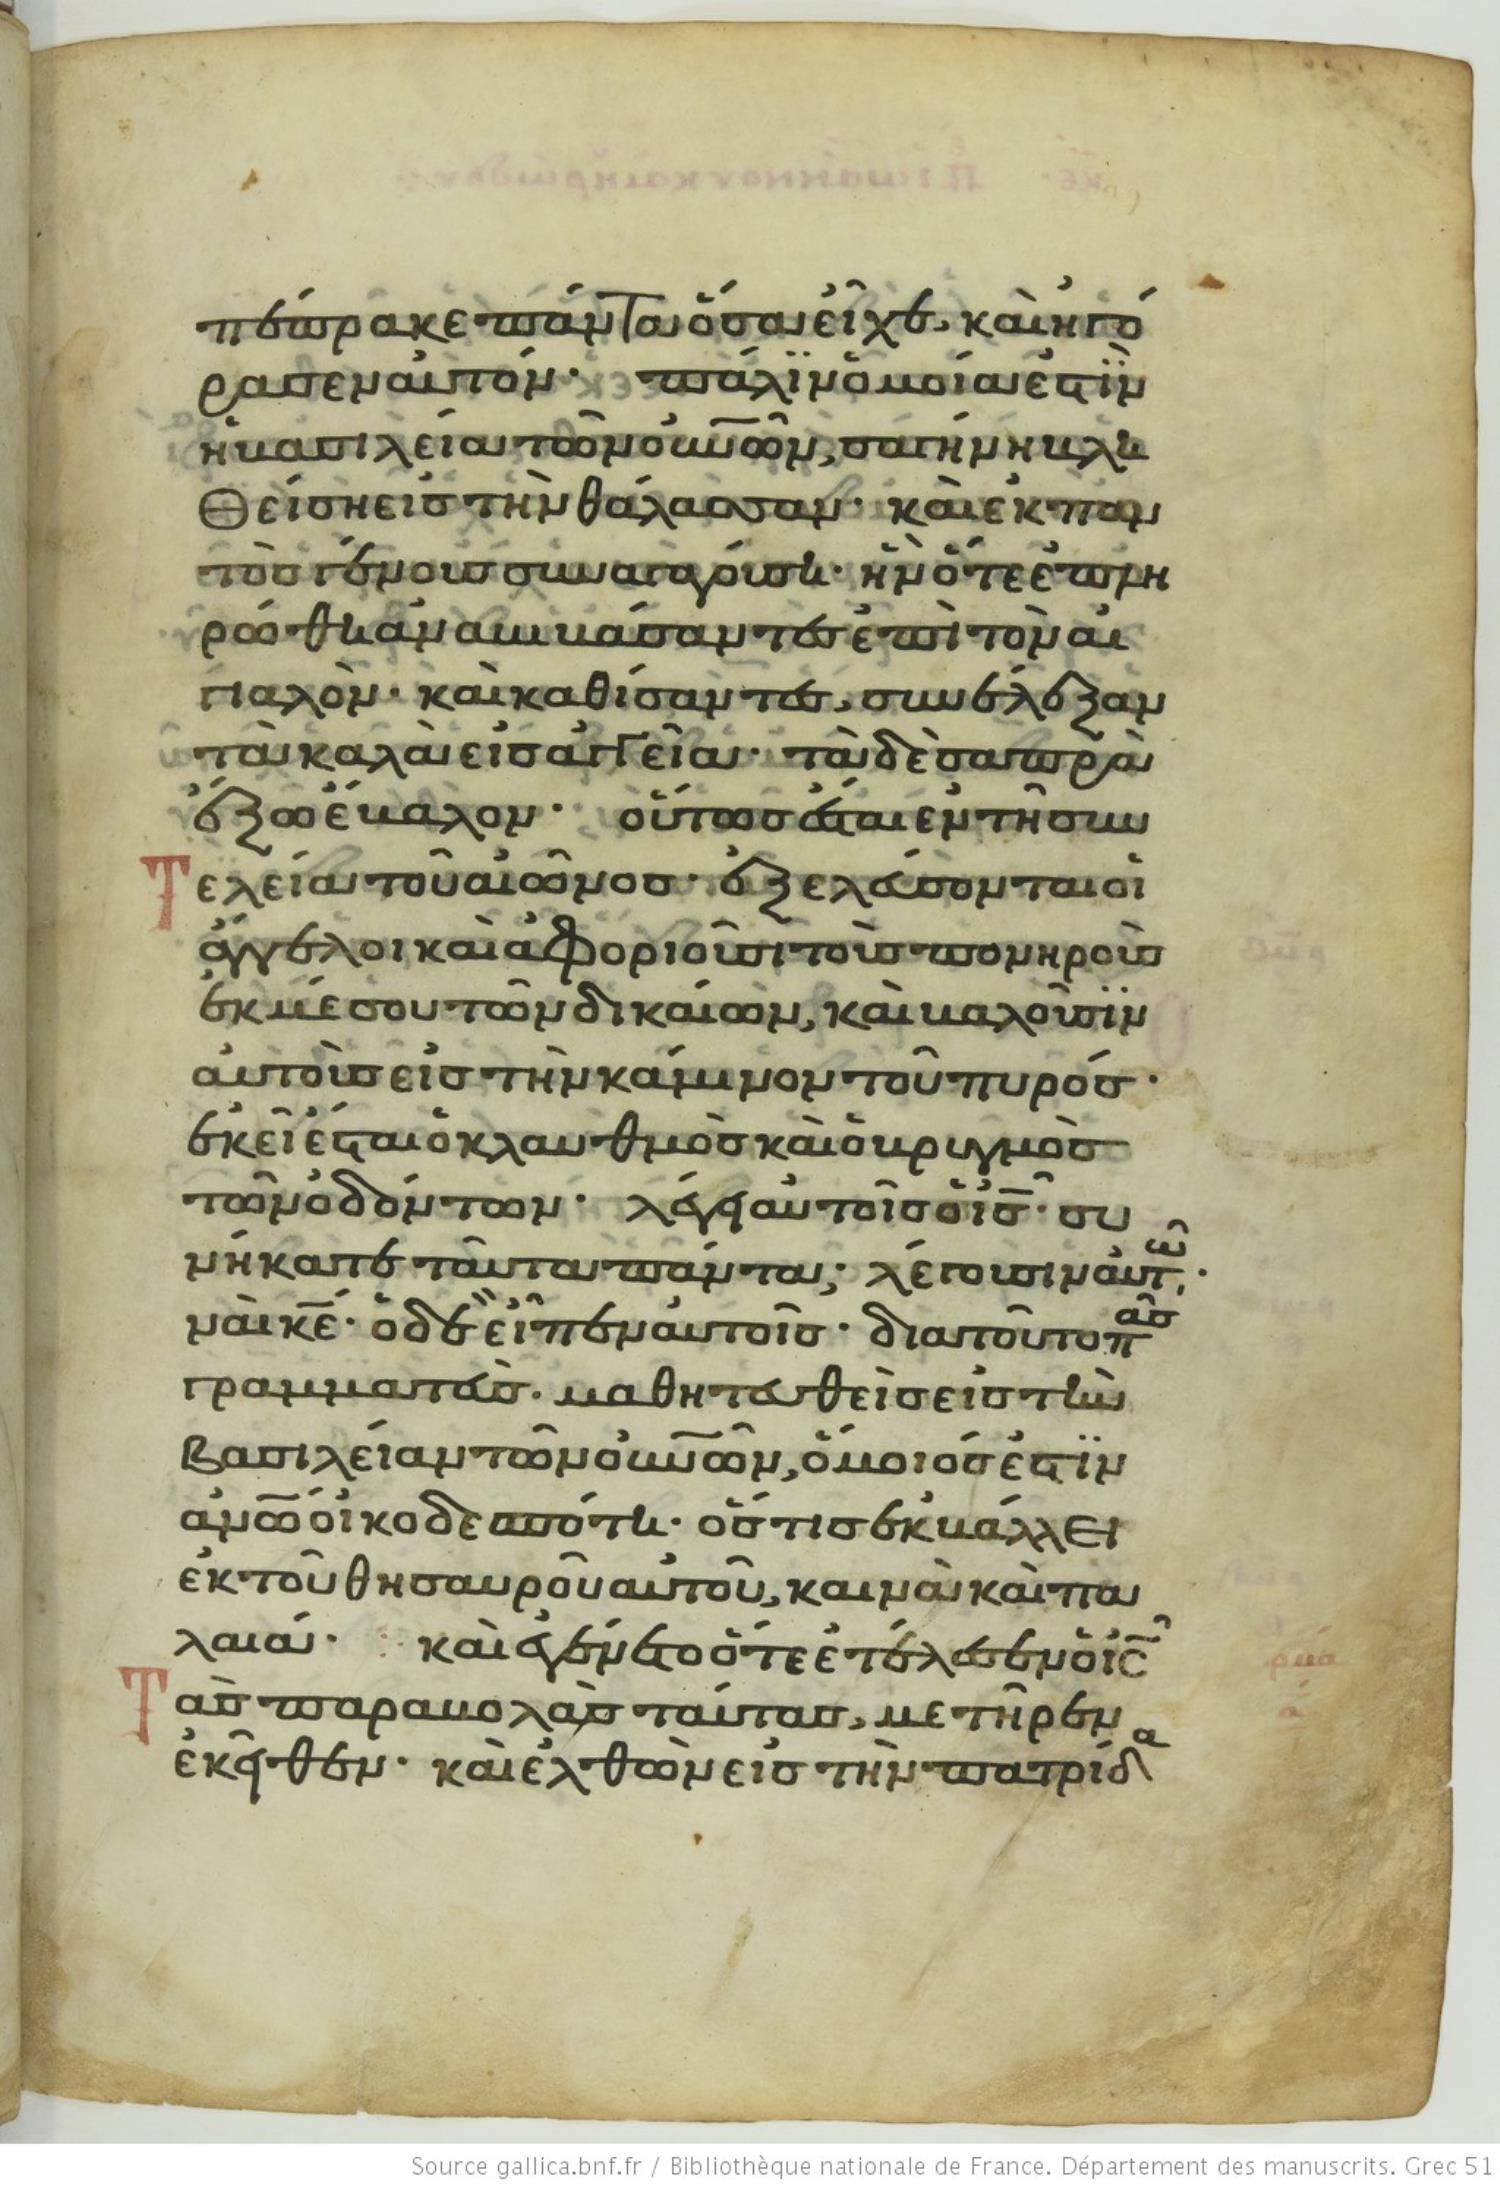 πέπρακε πάντα ὅσα εἶχε, καὶ ἠγό
ρασεν αὐτόν· πάλϊν ὁμοία ἐστὶν
ἡ βασιλεία τῶν οὐνῶν, σαγήνη βλη
θείση εἰς τὴν θάλασσαν· καὶ ἐκ παν
τὸς γένους συναγαγούση· ἣν ὅτε ἐπλη
ρώθη ἀναβιβάσαντες ἐπὶ τὸν αἰ
γιαλὸν· καὶ καθίσαντες, συνέλεξαν
τὰ καλὰ εἰς ἀγγεῖα· τὰ δὲ σαπρὰ
ἔξω ἔβαλον· οὕτως ἔσται ἐν τῇ συν
τελεία τοῦ αἰῶνος· ἐξελεύσονται οἱ
ἄγγελοι καὶ ἀφοριοῦσι τοὺς πονηροὺς
ἐκ μέσου τῶν δικαίων, καὶ βαλοῦσϊν
αὐτοὺς εἰς τὴν κάμινον τοῦ πυρός·
ἐκεῖ ἔσται ὁ κλαυθμὸς καὶ ὁ βρυγμὸς
τῶν ὀδόντων· λέγει αὐτοῖς ὁ ἰς· συ
νήκατε ταῦτα πάντα; λέγουσιν αὐτῶ·
ναὶ κε· ὁ δὲ εἶπεν αὐτοῖς· διατοῦτο πᾶς
γραμματεὺς· μαθητευθεὶς εἰς τὴν
βασιλείαν τῶν οὐνῶν, ὅμοιός ἐστϊν
ἀνω οἰκοδεσπότη· ὅστις ἐκβάλλει
ἐκ τοῦ θησαυροῦ αὐτοῦ, καινὰ καὶ πα
λαιά· καὶ ἐγένετο ὅτε ἐτέλεσεν ὁ ἰς
τὰς παραβολὰς ταύτας, μετῆρεν
ἐκεῖθεν· καὶ ἐλθὼν εἰς τὴν πατρίδα
Source gallica.bnf.fr / Bibliothèque nationale de France. Département des manuscrits. Grec 51